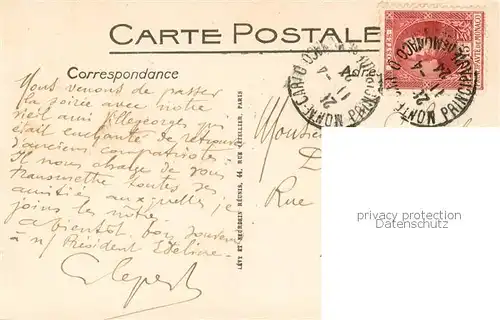 CARTE POSTALE
Correspondance
Adre
POSTES
PTÉ DE MONACO
MONTE-CARLO
PRINCIPAUTÉ DE MONACO
21-4
11
24
Nous venons de passer
la soirée avec notre
vieil ami Villegeorges qui
était enchanté de retrouver
d'anciens compatriotes
Il nous charge de vous
transmettre toutes ses
amitiés auxquelles je
joins les nôtres
à bientôt bon souvenir
à n/ Président
LÉVY ET NEURDEIN RÉUNIS, 44, RUE LETELLIER, PARIS
Monsieur
D
Rue
privacy protection
Datenschutz